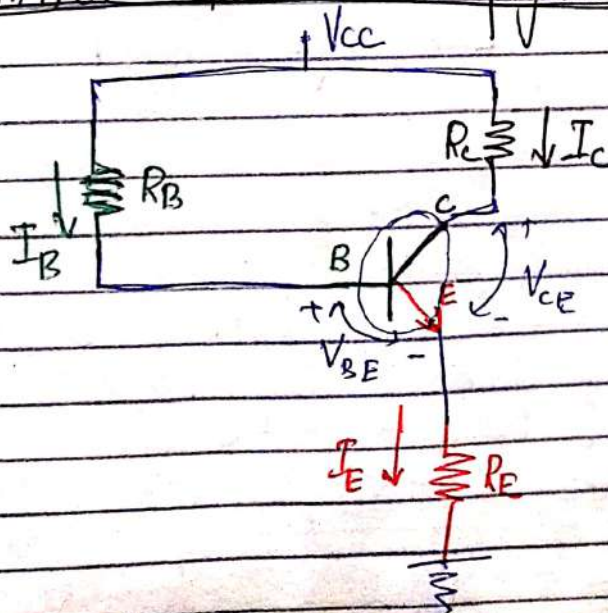 VCC
RC
IC
RB
IB
C
B
E
+
VCE
-
+
VBE
-
IE
RE